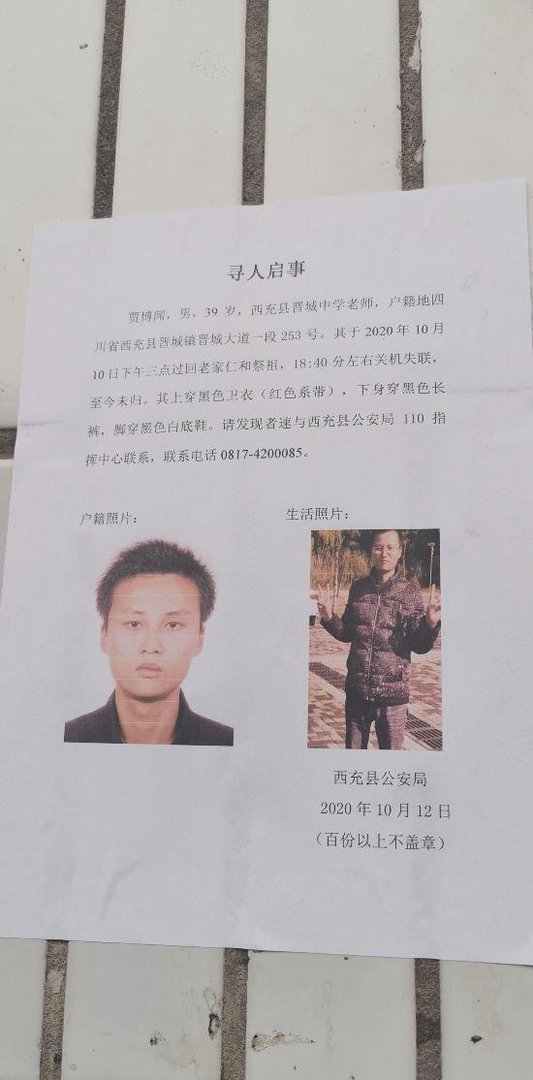 寻人启事
贾博闻，男，39 岁，西充县晋城中学老师，户籍地四
川省西充县晋城镇晋城大道一段 253 号。其于 2020 年 10 月
10 日下午三点过回老家仁和祭祖，18:40 分左右关机失联，
至今未归。其上穿黑色卫衣（红色系带），下身穿黑色长
裤，脚穿黑色白底鞋。请发现者速与西充县公安局 110 指
挥中心联系，联系电话 0817-4200085。
户籍照片： 生活照片：
西充县公安局
2020 年 10 月 12 日
（百份以上不盖章）